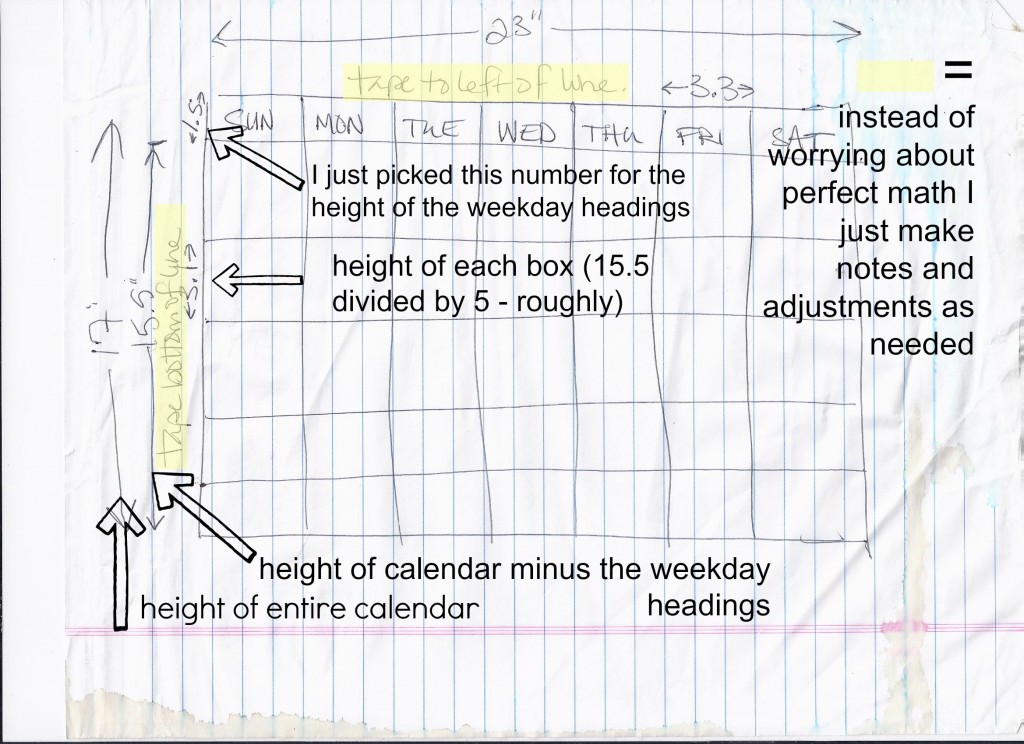 23"
tape to left of line.
3.3
=
1.5
SUN MON TUE WED THU FRI SAT
instead of
worrying about
perfect math I
just make
notes and
adjustments as
needed
I just picked this number for the
height of the weekday headings
height of each box (15.5
divided by 5 - roughly)
17"
15.5"
tape bottom of line
3.1
height of calendar minus the weekday
headings
height of entire calendar